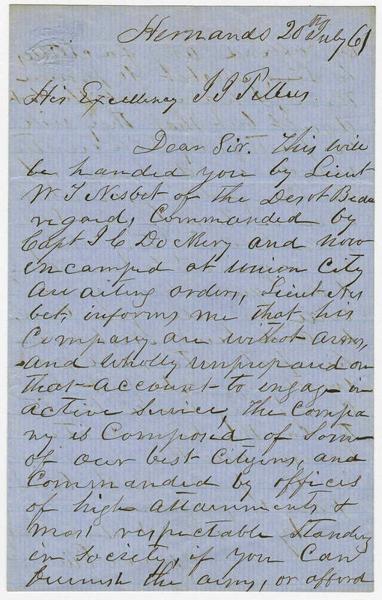 Hernando 20th July 61
His Excellency J J Pettus
Dear Sir. This will
be handed you by Lieut
W T Nesbet of the Desot Beau
regard, Commanded by
Capt I C De Mery and now
encamped at Union City
awaiting orders, Lieut Nes
bet, informs me that his
Company are without arms,
and wholly unprepared on
that account to engage in
active Service, the Compa
ny is Composed of some
of our best Citizens, and
Commanded by offices
of high attainments &
most respectable Standing
in Society, if you can
furnish the arms, or afford